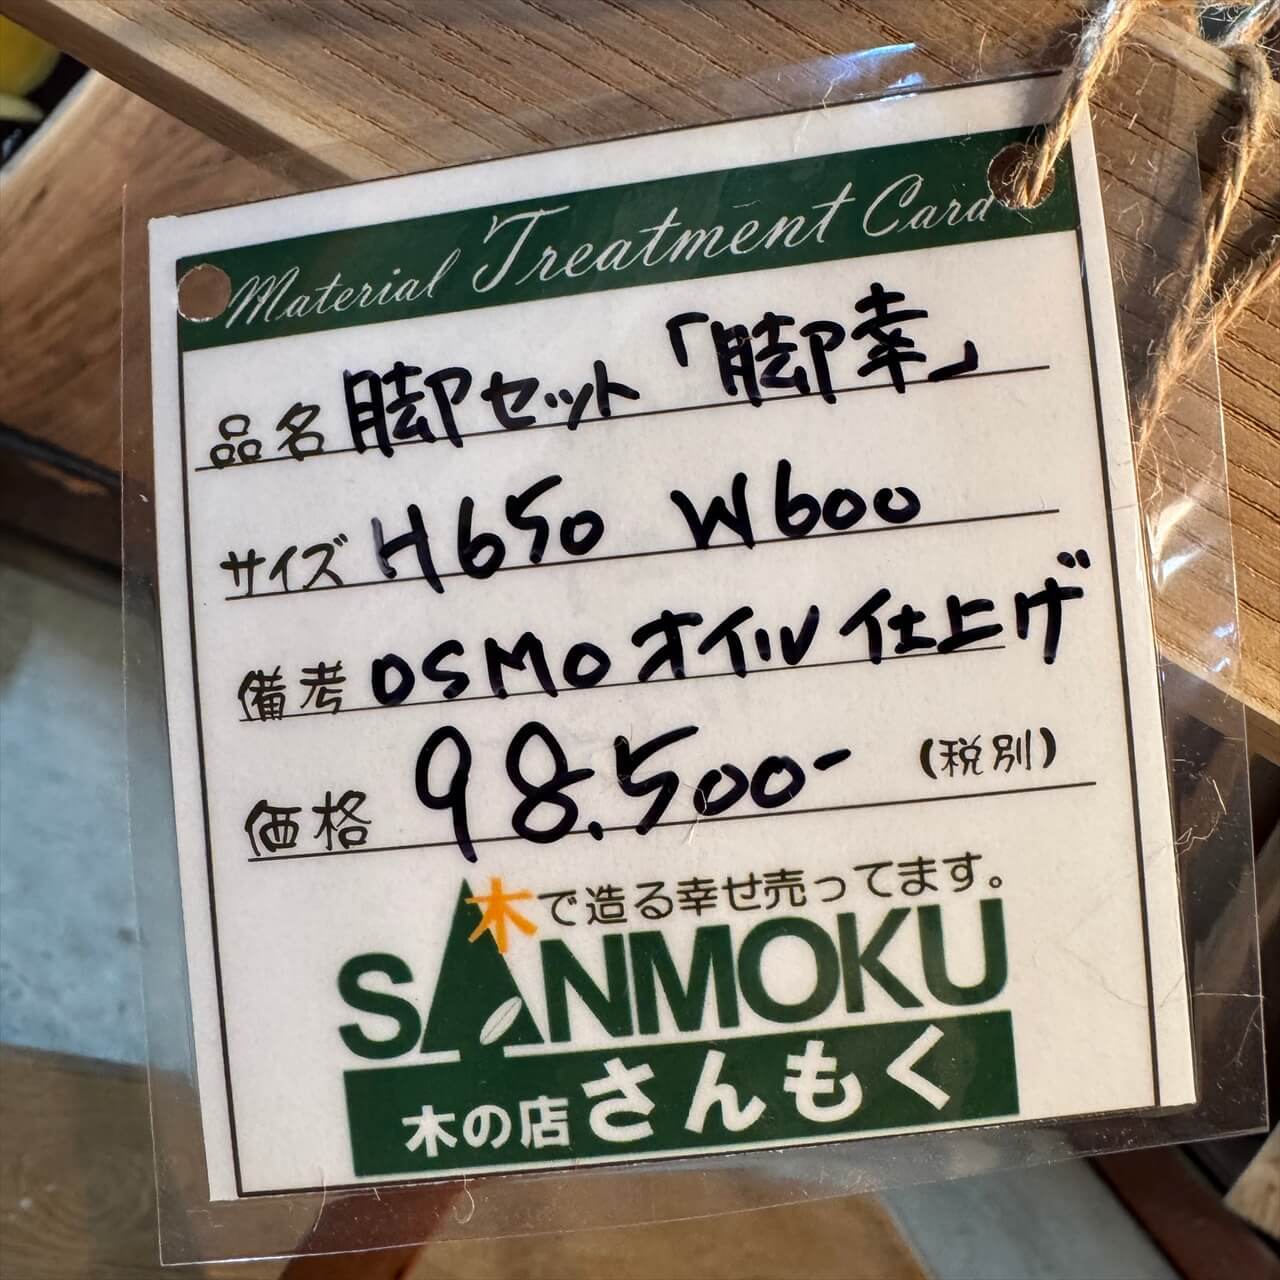 Material Treatment Card
品名 脚セット「脚幸」
サイズ H650 W600
備考 OSMOオイル仕上げ
価格 98.500- (税別)
木で造る幸せ売ってます。
SANMOKU
木の店さんもく